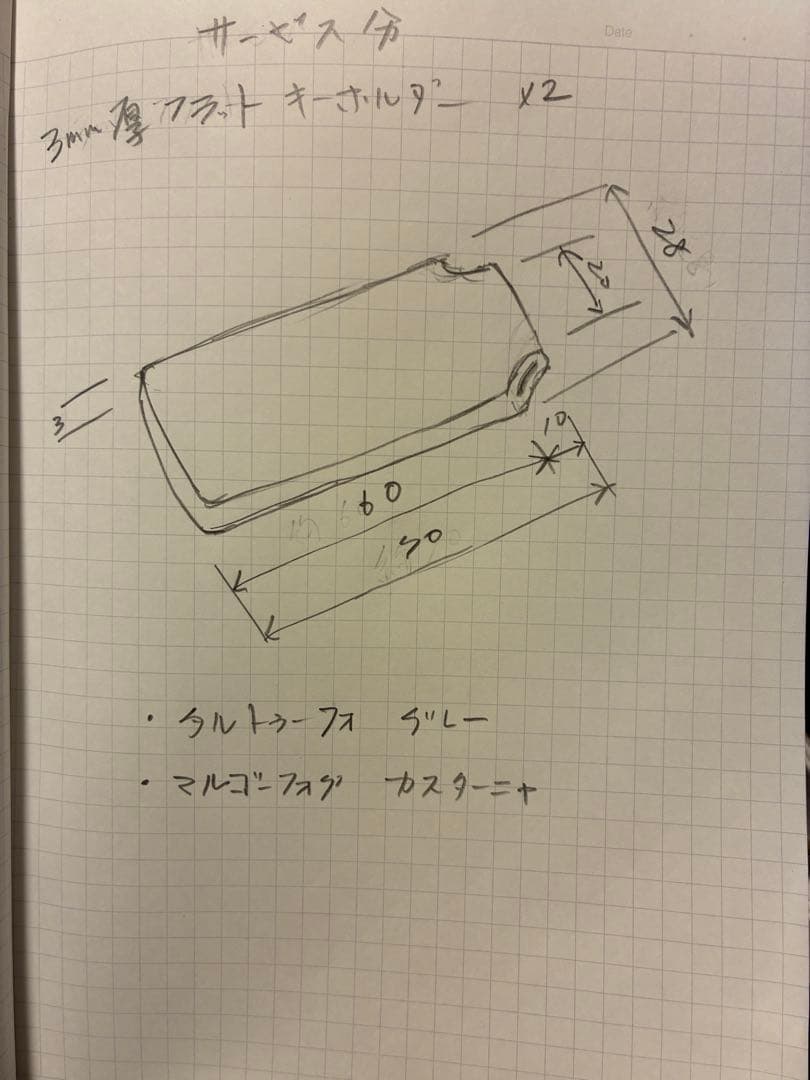 Date
サービス分
3mm厚 フラット キーホルダー x2
28
20
3
10
60
・タルトゥーフォ グレー
・マルゴーフォグ カスターニャ